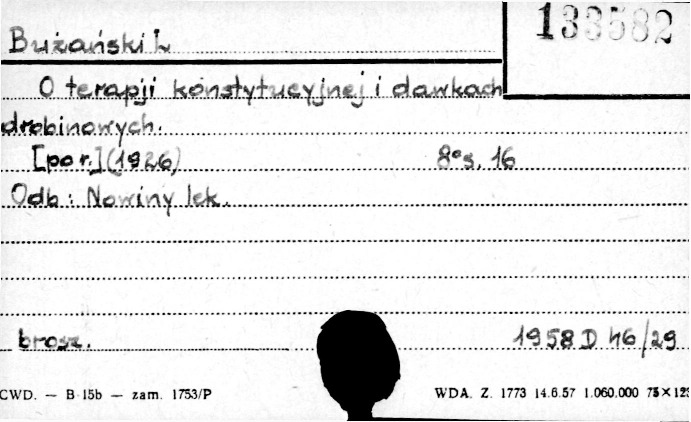 133582
Bużański L
O terapji konstytucyjnej i dawkach
drobinowych.
[por.] (1926) 8° s. 16
Odb: Nowiny lek.
brosz. 1958 D 46/29
CWD. — B-15b — zam. 1753/P WDA. Z. 1773 14.6.57 1.060.000 75×125